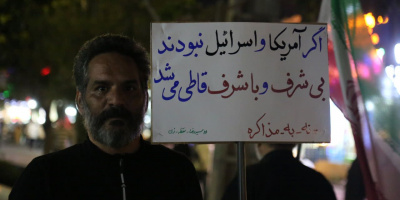 اگر آمریکا و اسرائیل نبودند
بی شرف و با شرف قاطی می شد
نه_به_مذاکره